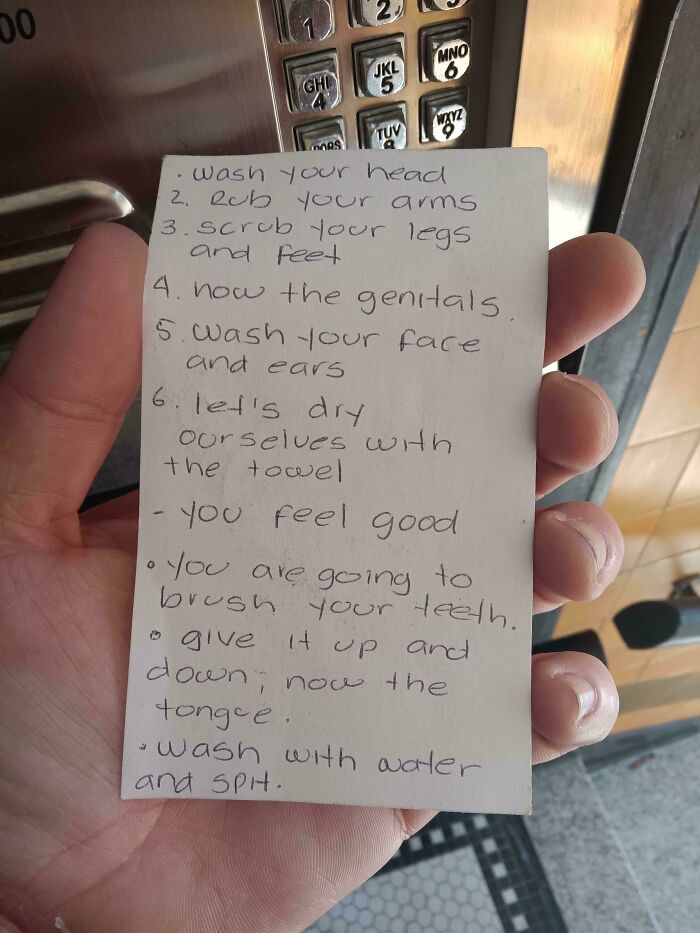 00
1
2
3
GHI
4
JKL
5
MNO
6
PQRS
TUV
8
WXYZ
9
. wash your head
2. Rub your arms
3. scrub your legs
and feet
4. now the genitals.
5. wash your face
and ears
6. let's dry
ourselves with
the towel
- you feel good
• you are going to
brush your teeth.
• give it up and
down, now the
tongue.
• wash with water
and spit.